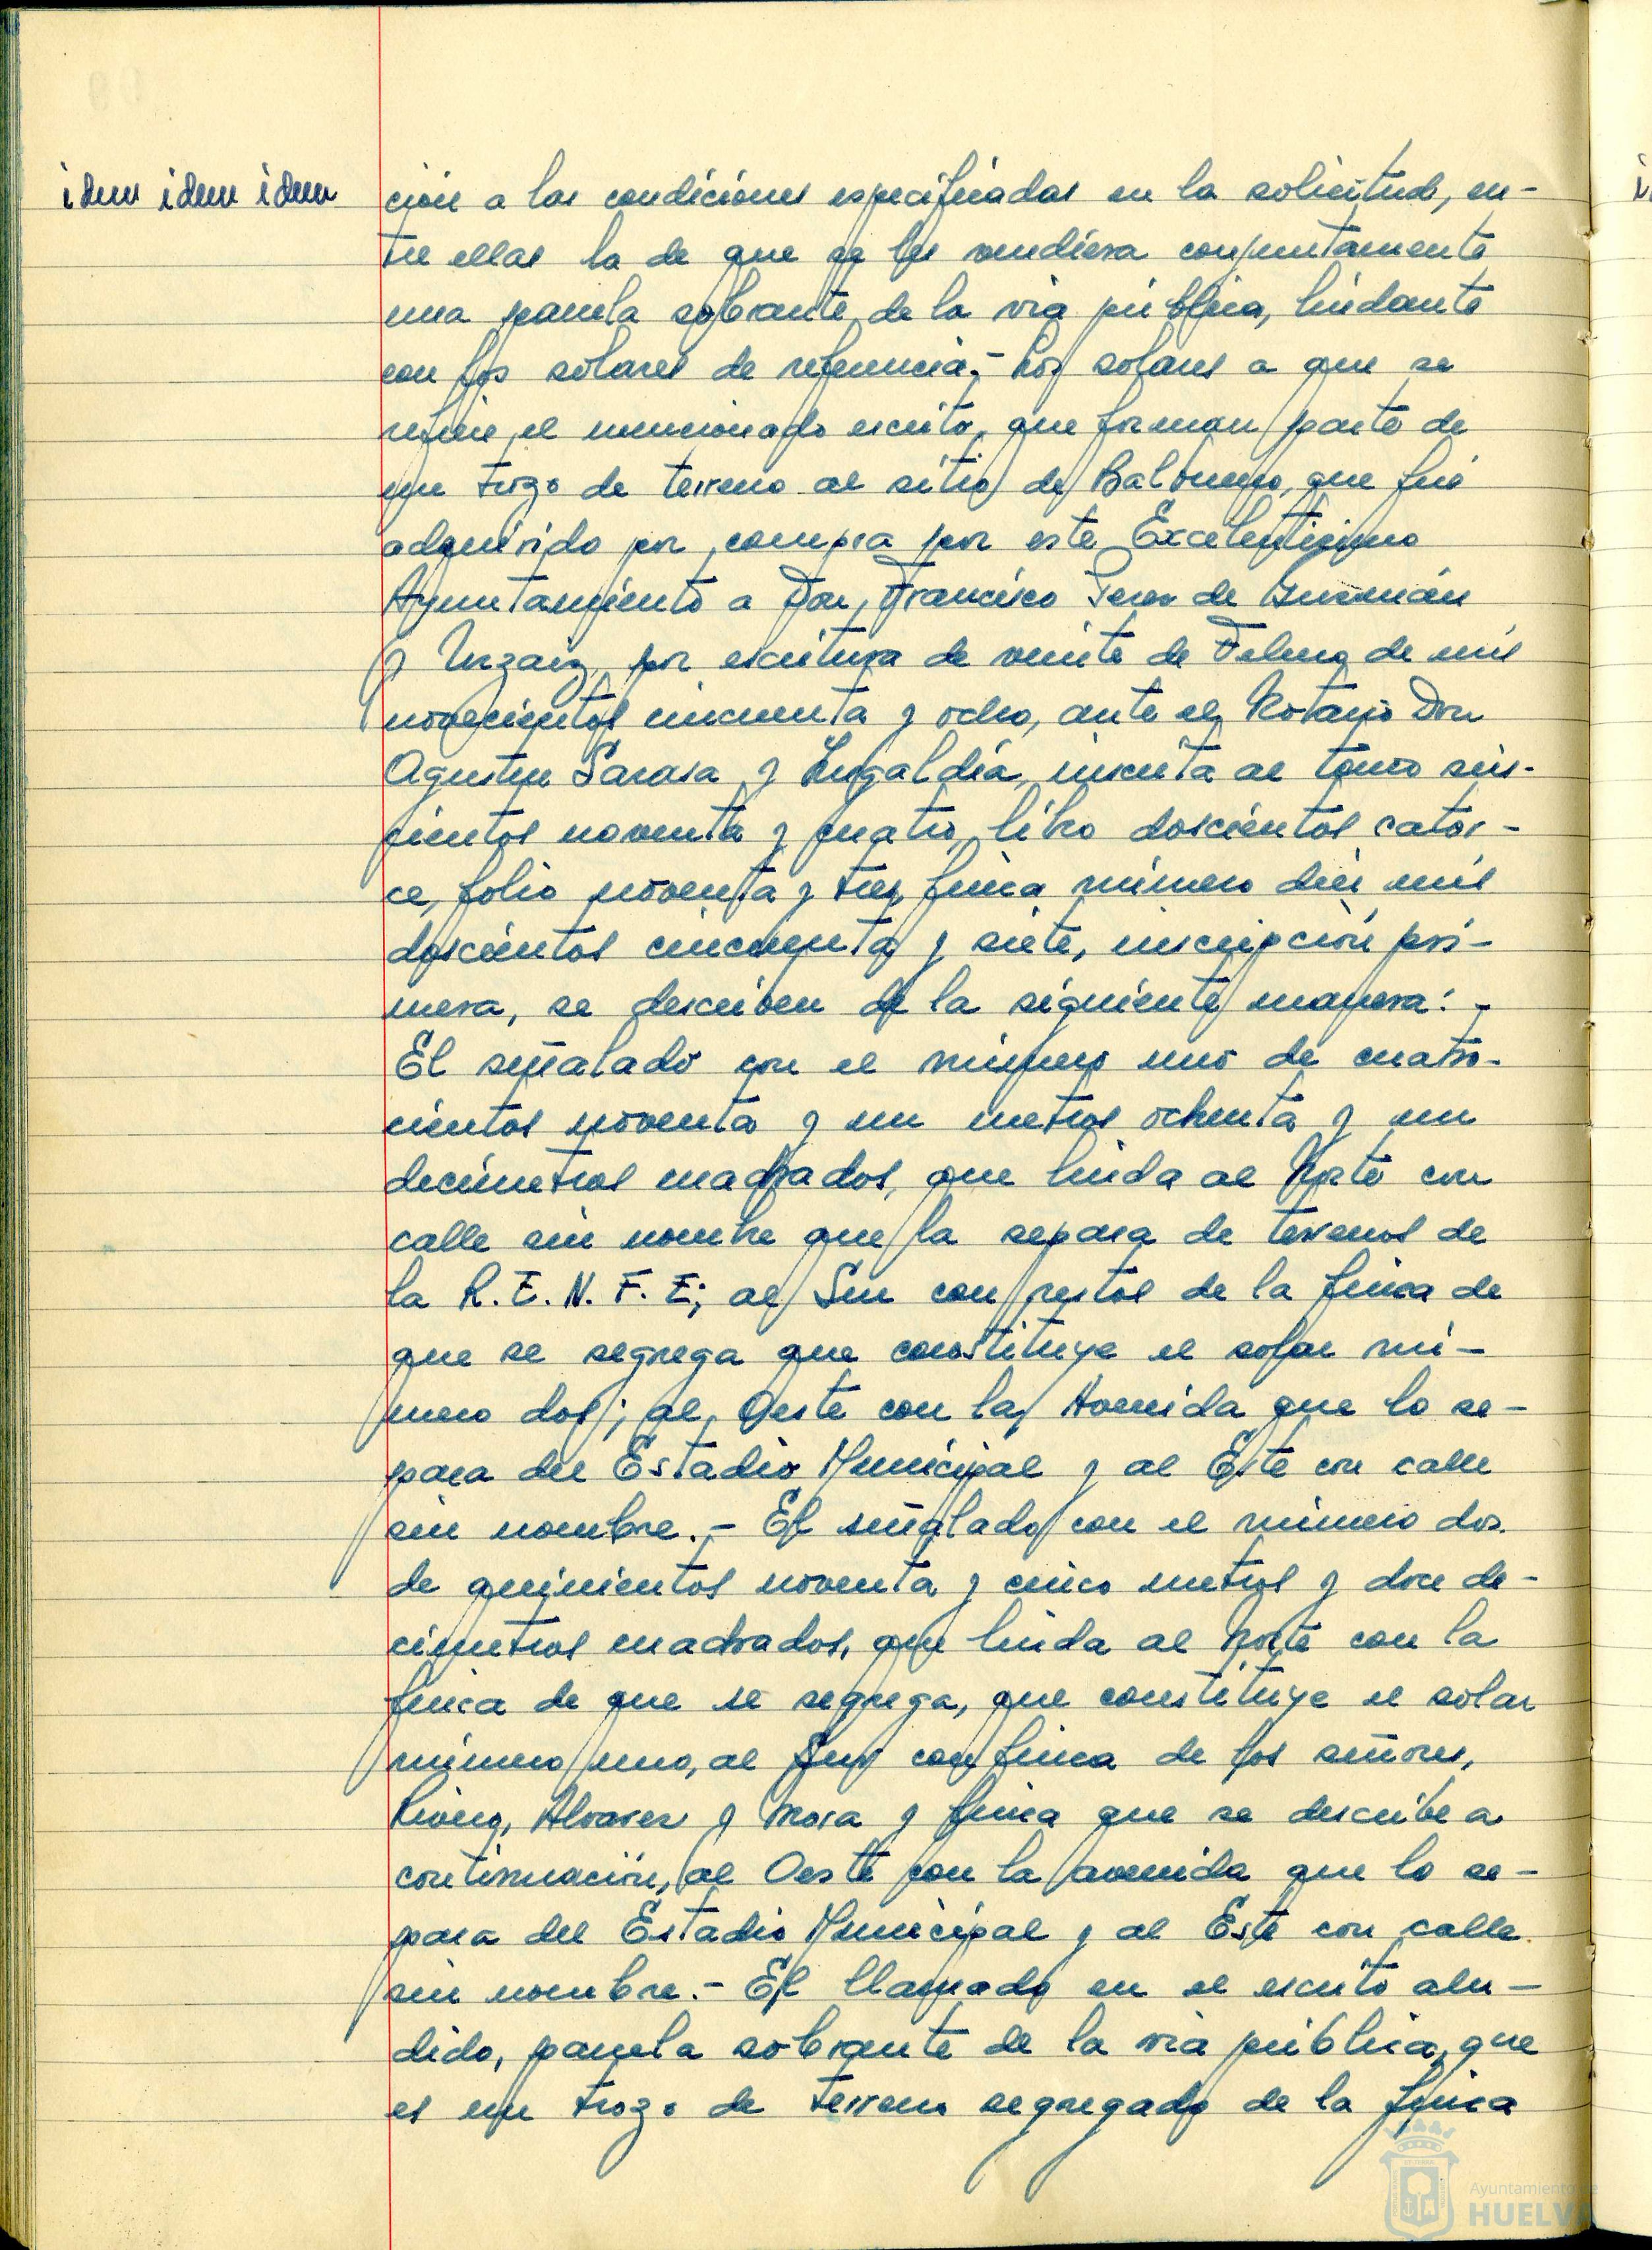 idem idem idem
ción a las condiciones especificadas en la solicitud, en-
tre ellas la de que se les vendiera conjuntamente
una parcela sobrante de la via pública, lindante
con los solares de referencia.- Los solares a que se
refiere el mencionado escrito, que forman parte de
un trozo de terreno al sitio de Balbueno, que fué
adquirido por compra por este Excelentísimo
Ayuntamiento a Don Francisco Perez de Guzmán
y Urzaiz, por escritura de veinte de Febrero de mil
novecientos cincuenta y ocho, ante el Notario Don
Agustin Sarasa y Zugaldía, inscrita al tomo seis-
cientos noventa y cuatro, libro doscientos cator-
ce, folio noventa y tres, finca número diez mil
doscientos cincuenta y siete, inscripción pri-
mera, se describen de la siguiente manera: -
El señalado con el número uno de cuatro-
cientos noventa y un metros ochenta y un
decimetros cuadrados, que linda al Norte con
calle sin nombre que la separa de terrenos de
la R.E.N.F.E; al Sur con restos de la finca de
que se segrega que constituye el solar nú-
mero dos; al Oeste con la Avenida que lo se-
para del Estadio Municipal y al Este con calle
sin nombre.- El señalado con el número dos
de quinientos noventa y cinco metros y doce de-
cimetros cuadrados, que linda al Norte con la
finca de que se segrega, que constituye el solar
número uno, al Sur con finca de los señores,
Alvarez y Mora y finca que se describe a
continuación, al Oeste con la avenida que lo se-
para del Estadio Municipal y al Este con calle
sin nombre.- El llamado en el escrito alu-
dido, parcela sobrante de la via pública, que
es un trozo de terreno segregado de la finca
Ayuntamiento de
HUELVA